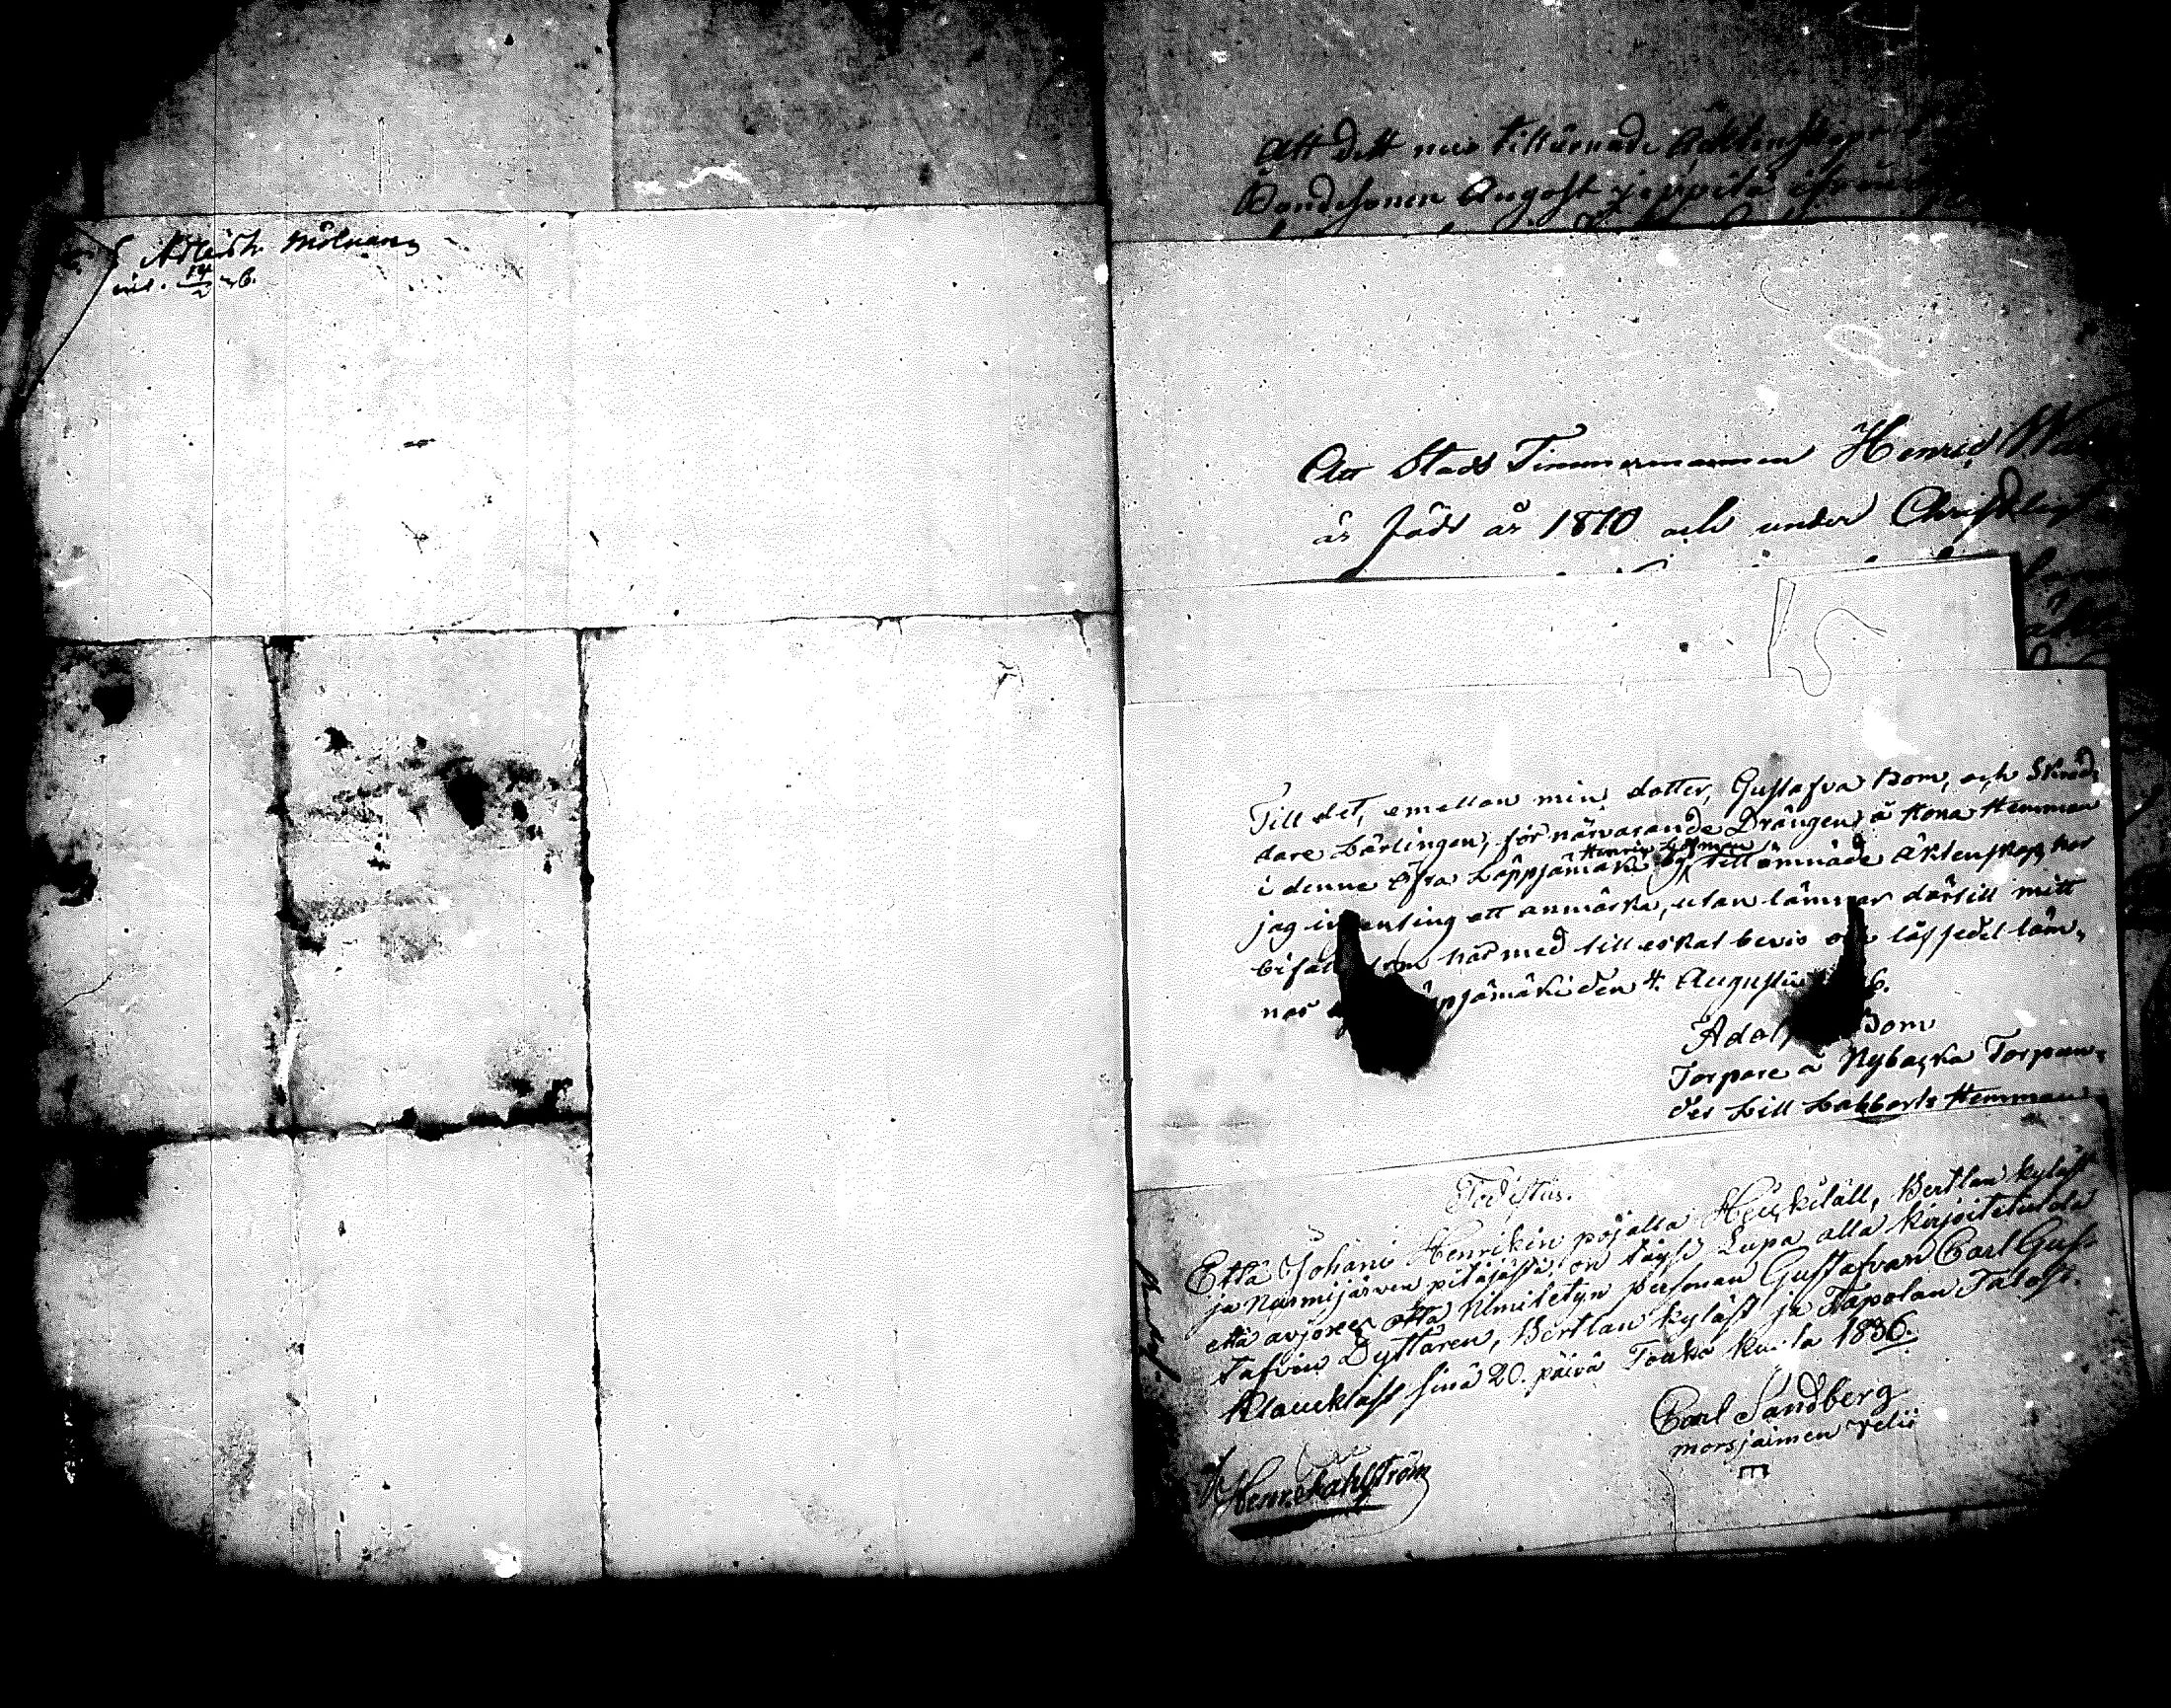 Adlerh. Mölnarn
inl. 14/2 36.
Att dett meo tillärnade Äcktenskap
Bondesonen August jeppilä
Att Stads Timmermannen Henric
är född år 1810 och under Christelig
Till det, emellan min dotter, Gustafva Bom, och Skräd,
dare Lärlingen, för närvarande Drängen å Kona Hemman
Henric Löfman
i denne Öfra Läppjämäki by, tillämnade äktenskap, har
jag ingenting att anmärka, utan lämnar därtill mitt
bifall som härmed till äskat bevis och läysjedel läm,
nas Läppjämäki den 4. Augusti 6.
Adolf Bom
Torpare å Nybacka Torp un,
der Lill Labbarls Hemman
Todistus.
Että Johani Henrikin pojalla Heickiläll, Bertlan kyläst
ja Nurmijärven pitäjästä, on täysi Lupa alla kirjoitetulda
että avjonen otta Nimitetyn personan Gustafvan Carl Gus-
tafvin Dyttären, Bertlan kyläst ja Tapolan Talost.
Klaucklast sinä 20. päivä Touko kuula 1836.
Carl Sandberg
morsjaimen velii
Henr. Dahlström